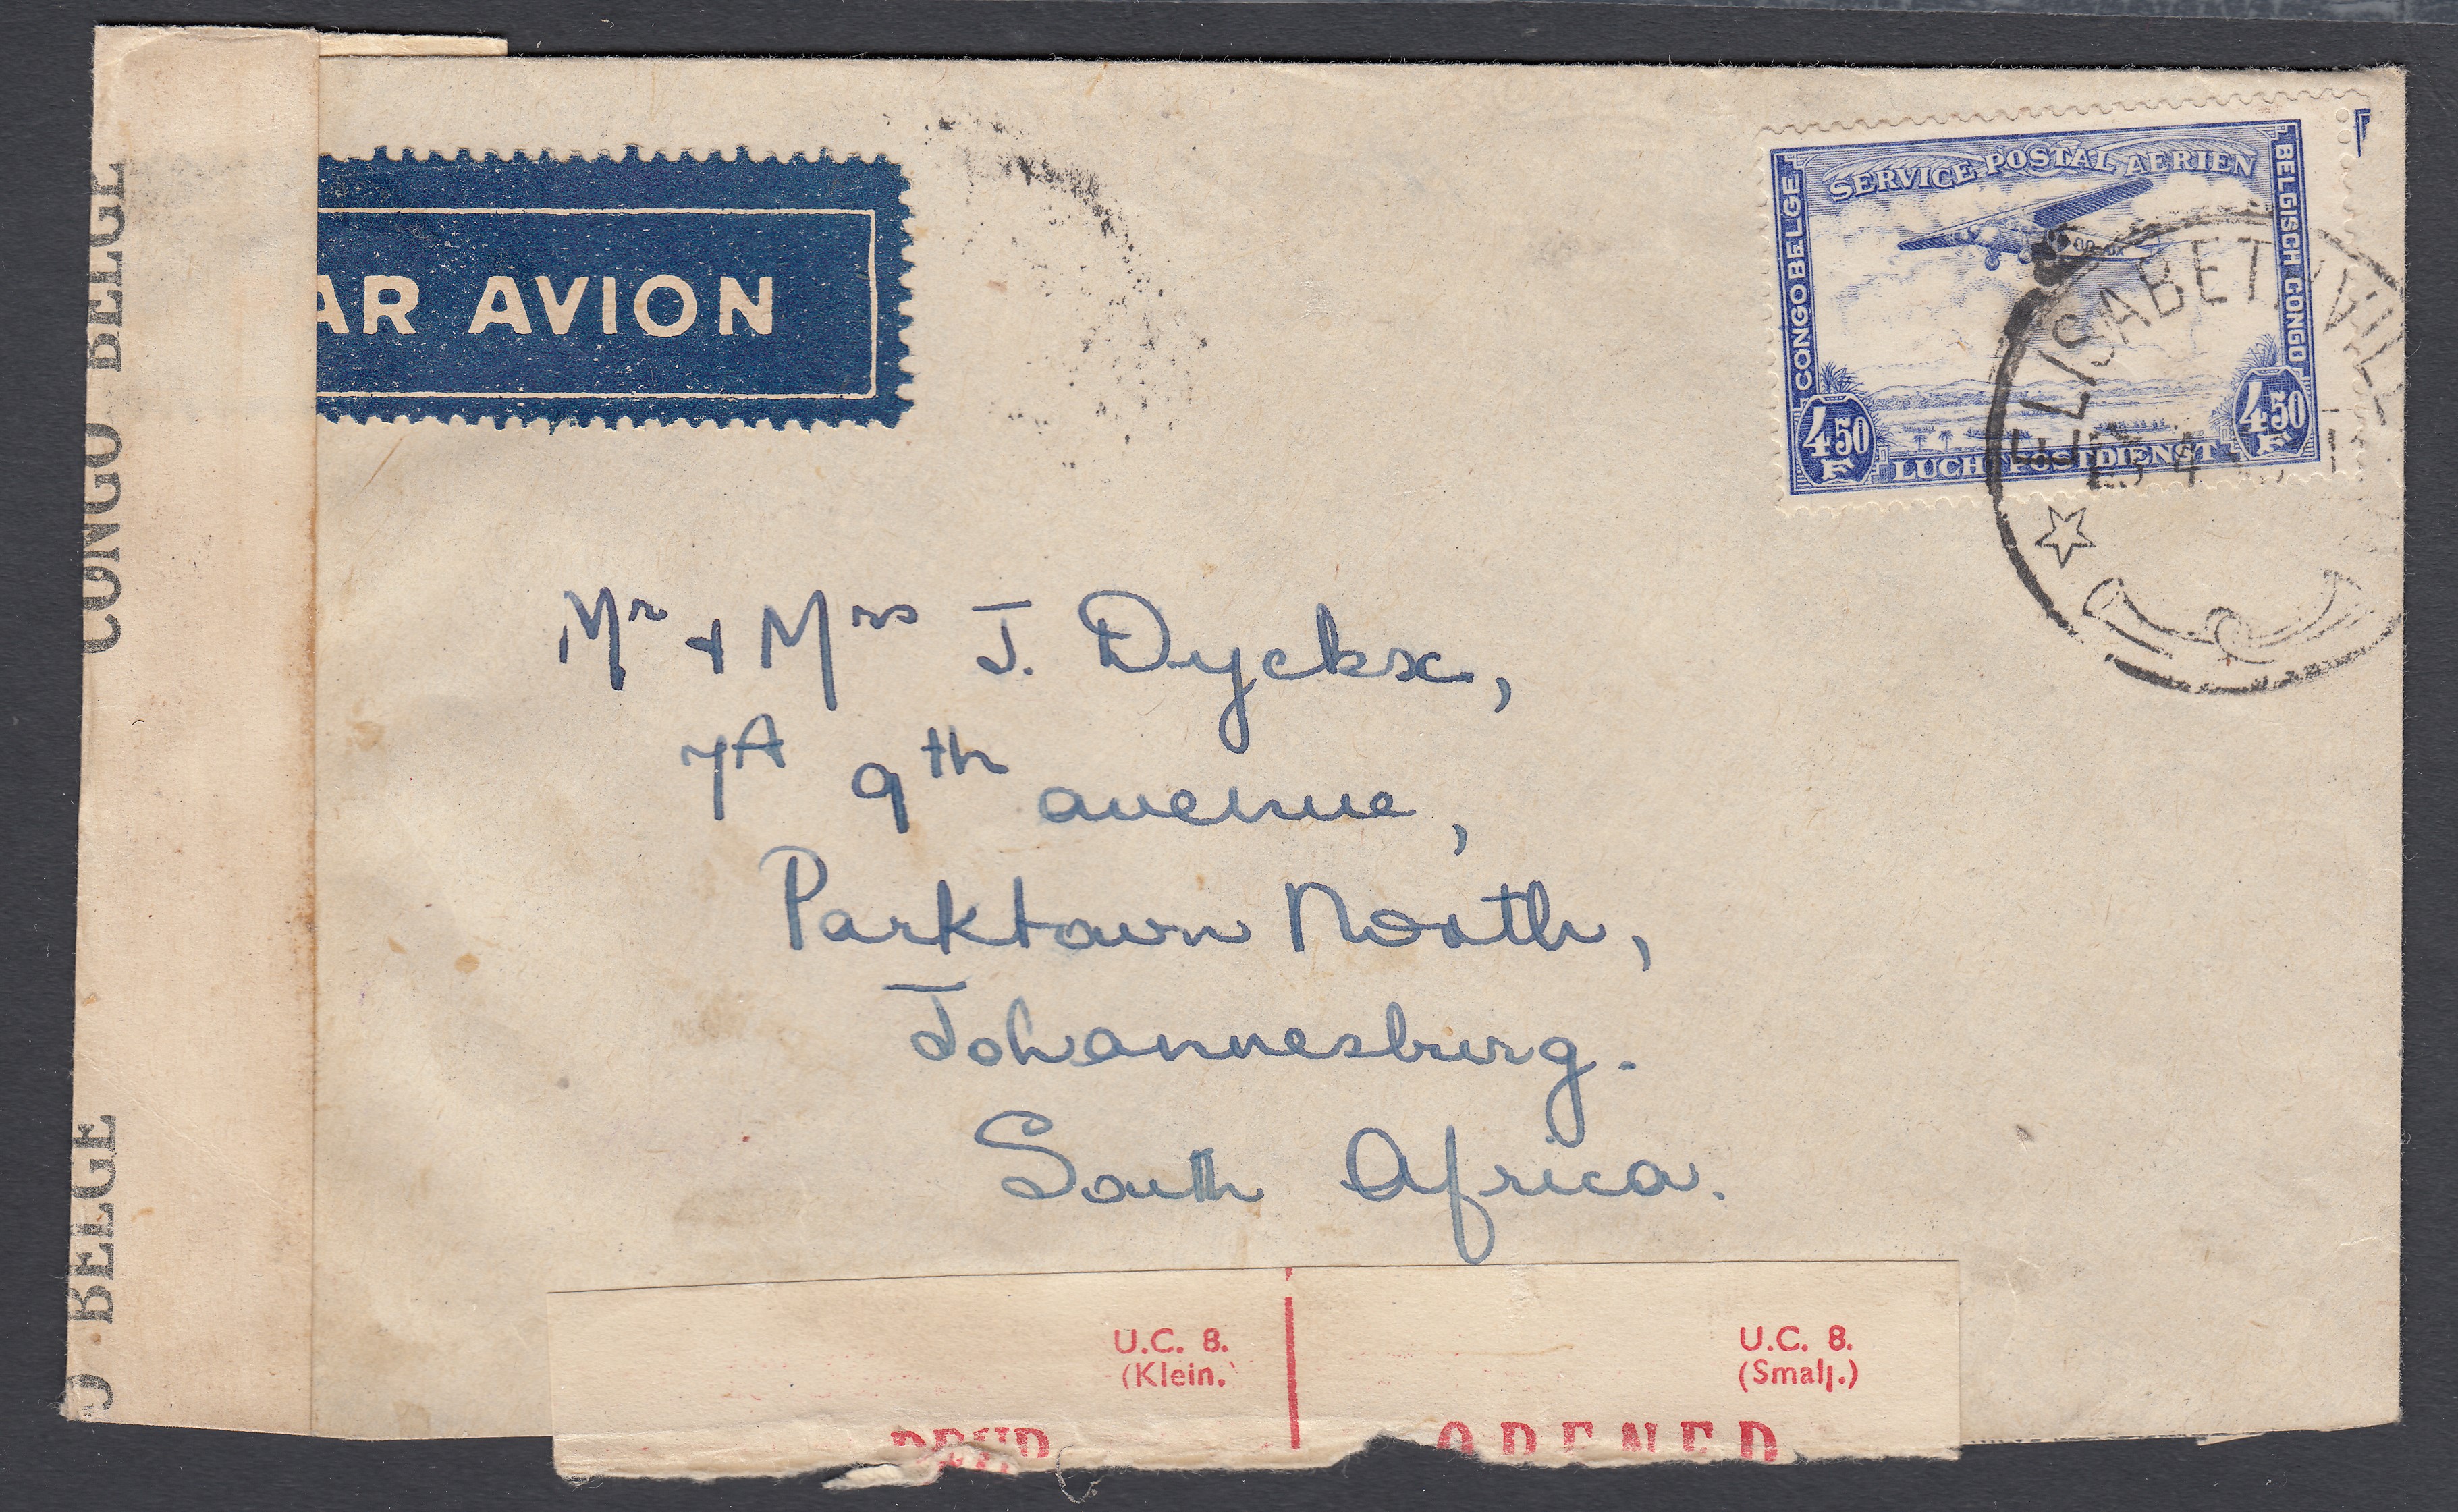 CONGO BELGE
BELGE
AR AVION
SERVICE POSTAL AERIEN
CONGO BELGE
BELGISCH CONGO
4.50
F
4.50
F
POSTDIENST
Mr + Mrs J. Dyckx,
7A 9th avenue,
Parktown North,
Johannesburg.
South Africa.
U.C. 8.
(Klein.)
U.C. 8.
(Small.)
OPENED